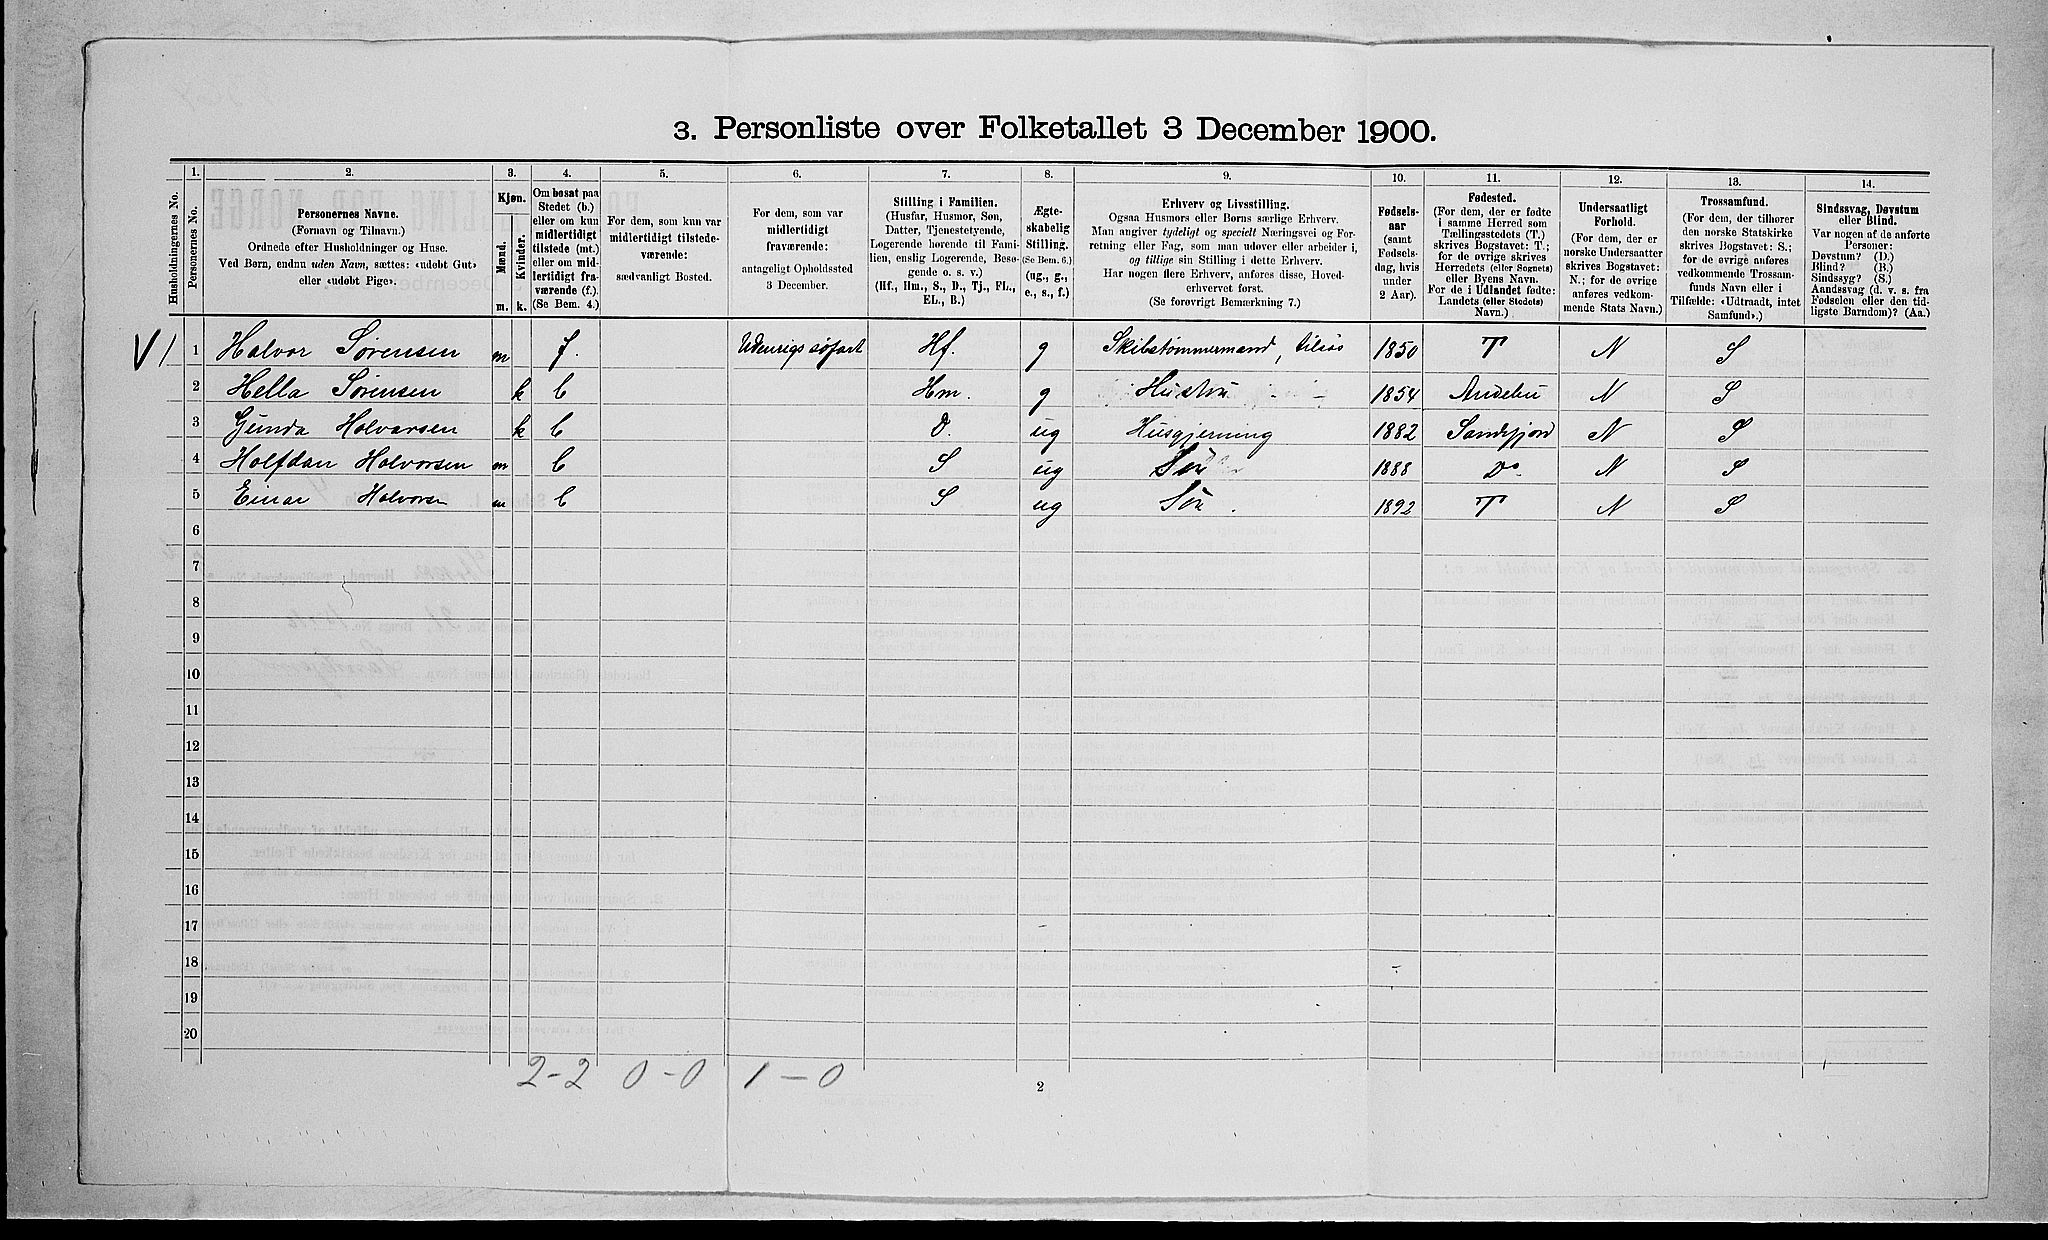 3. Personliste over Folketallet 3 December 1900.
Husholdningernes No.
1.
Personernes No.
2.
Personernes Navne.
(Fornavn og Tilnavn.)
Ordnede efter Husholdninger og Huse.
Ved Børn, endnu uden Navn, sættes: «udøbt Gut»
eller «udøbt Pige».
3.
Kjøn.
Mænd.
Kvinder.
m. k.
4.
Om bosat paa
Stedet (b.)
eller om kun
midlertidigt
tilstede (mt.)
eller om mid-
lertidigt fra-
værende (f.).
(Se Bem. 4.)
5.
For dem, som kun var
midlertidigt tilstede-
værende:
sædvanligt Bosted.
6.
For dem, som var
midlertidigt
fraværende:
antageligt Opholdssted
3 December.
7.
Stilling i Familien.
(Husfar, Husmor, Søn,
Datter, Tjenestetyende,
Logerende hørende til Fami-
lien, enslig Logerende, Besø-
gende o. s. v.)
(Hf., Hm., S., D., Tj., FL.,
EL., B.)
8.
Ægte-
skabelig
Stilling.
(Se Bem. 6.)
(ug., g.,
e., s., f.)
9.
Erhverv og Livsstilling.
Ogsaa Husmors eller Børns særlige Erhverv.
Man angiver tydeligt og specielt Næringsvei og For-
retning eller Fag, som man udøver eller arbeider i,
og tillige sin Stilling i dette Erhverv.
Har nogen flere Erhverv, anføres disse, Hoved-
erhvervet først.
(Se forøvrigt Bemærkning 7.)
10.
Fødsels-
aar
(samt
Fødsels-
dag, hvis
under
2 Aar).
11.
Fødested.
(For dem, der er fødte
i samme Herred som
Tællingsstedets (T.)
skrives Bogstavet: T.;
for de øvrige skrives
Herredets (eller Sognets)
eller Byens Navn.
For de i Udlandet fødte:
Landets (eller Stedets)
Navn.)
12.
Undersaatligt
Forhold.
(For dem, der er
norske Undersaatter
skrives Bogstavet:
N.; for de øvrige
anføres vedkom-
mende Stats Navn.)
13.
Trossamfund.
(For dem, der tilhører
den norske Statskirke
skrives Bogstavet: S.;
for de øvrige anføres
vedkommende Trossam-
funds Navn eller i
Tilfælde: «Udtraadt, intet
Samfund».)
14.
Sindssvag, Døvstum
eller Blind.
Var nogen af de anførte
Personer:
Døvstum? (D.)
Blind? (B.)
Sindssyg? (S.)
Aandssvag (d. v. s. fra
Fødselen eller den tid-
ligste Barndom)? (Aa.)
V 1 1 Halvor Sørensen m f. Udenrigs søfart Hf. g Skibstømmermand, tilsøs 1850 T N S
2 Hella Sørensen k b Hm. g Hustru 1854 Andebu N S
3 Gunda Halvorsen k b D. ug Husgjerning 1882 Sandefjord N S
4 Halfdan Halvorsen m b S ug Søn 1888 Do N S
5 Einar Halvorsen m b S ug Søn . 1892 T N S
6
7
8
9
10
11
12
13
14
15
16
17
18
19
20
2-2 0-0 1-0
2